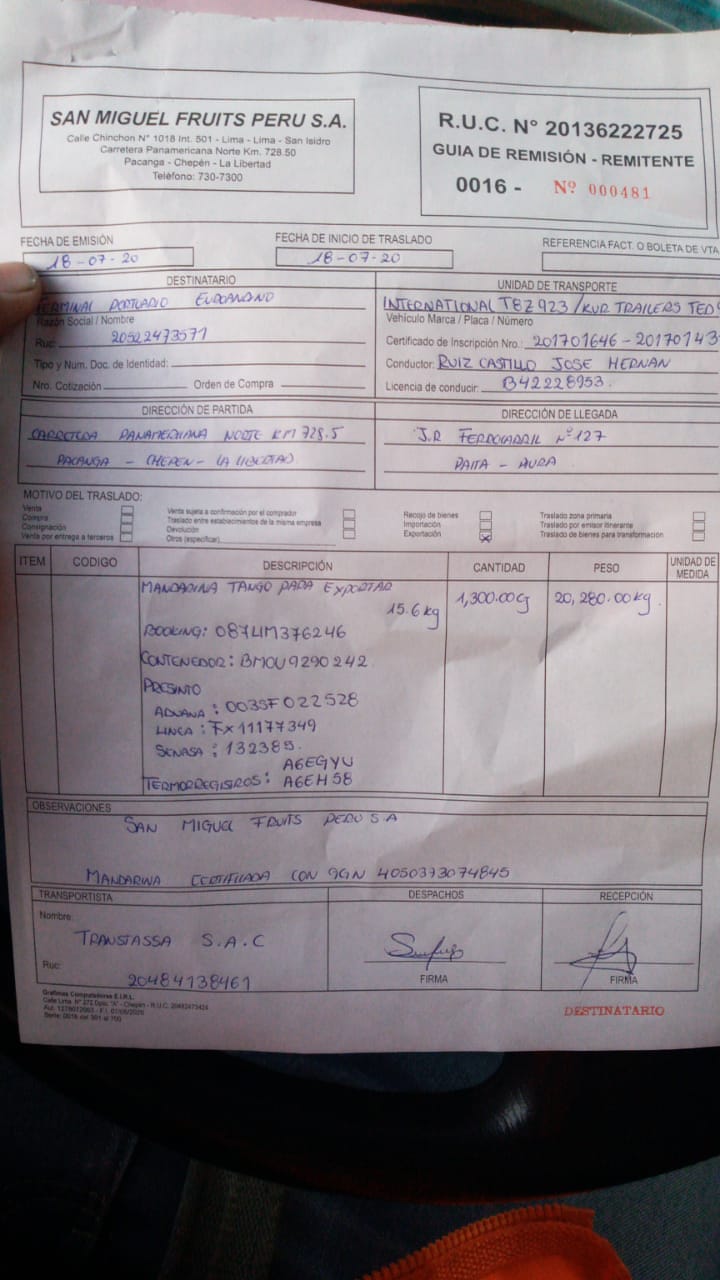 SAN MIGUEL FRUITS PERU S.A.
Calle Chinchon N° 1018 Int. 501 - Lima - Lima - San Isidro
Carretera Panamericana Norte Km. 728.50
Pacanga - Chepén - La Libertad
Teléfono: 730-7300
R.U.C. N° 20136222725
GUIA DE REMISIÓN - REMITENTE
0016 - Nº 000481
FECHA DE EMISIÓN
18-07-20
FECHA DE INICIO DE TRASLADO
18-07-20
REFERENCIA FACT. O BOLETA DE VTA
DESTINATARIO
TERMINAL PORTUARIO EUROANDINO
Razón Social / Nombre
Ruc: 20522473571
Tipo y Num. Doc. de Identidad:
Nro. Cotización Orden de Compra
UNIDAD DE TRANSPORTE
INTERNATIONAL T8Z923/KUR TRAILERS
Vehículo Marca / Placa / Número
Certificado de Inscripción Nro.: 201701646-20170143
Conductor: RUIZ CASTILLO JOSE HERNAN
Licencia de conducir: B42228953.
DIRECCIÓN DE PARTIDA
CARRETERA PANAMERICANA NORTE KM 728.5
PACANGA - CHEPEN - LA LIBERTAD
DIRECCIÓN DE LLEGADA
J.R FERROCARRIL Nº127
PAITA - PIURA
MOTIVO DEL TRASLADO:
Venta
Compra
Consignación
Venta por entrega a terceros
Venta sujeta a confirmación por el comprador
Traslado entre establecimientos de la misma empresa
Devolución
Otros (especificar)
Recojo de bienes
Importación
Exportación X
Traslado zona primaria
Traslado por emisor itinerante
Traslado de bienes para transformación
ITEM CODIGO DESCRIPCIÓN CANTIDAD PESO UNIDAD DE MEDIDA
MANDARINA TANGO PARA EXPORTAR 1,300.00 20,280.00kg.
15.6 kg
BOOKING: 087LIM376246
CONTENEDOR: BMOU9290242
PRESINTO
ADUANA: 003SF022528
LINEA: FX11177349
SENASA: 132385.
A6EGYU
TERMORREGISTROS: A6EH58
OBSERVACIONES
SAN MIGUEL FRUITS PERU S.A
MANDARINA CERTIFICADA CON GGN 4050373074845
TRANSPORTISTA
Nombre:
TRANSTASSA S.A.C
Ruc:
20484138461
DESPACHOS
FIRMA
RECEPCIÓN
FIRMA
Calle Lima N° 272 Dpto. "A" - Chepén - R.U.C. 20482473424
DESTINATARIO